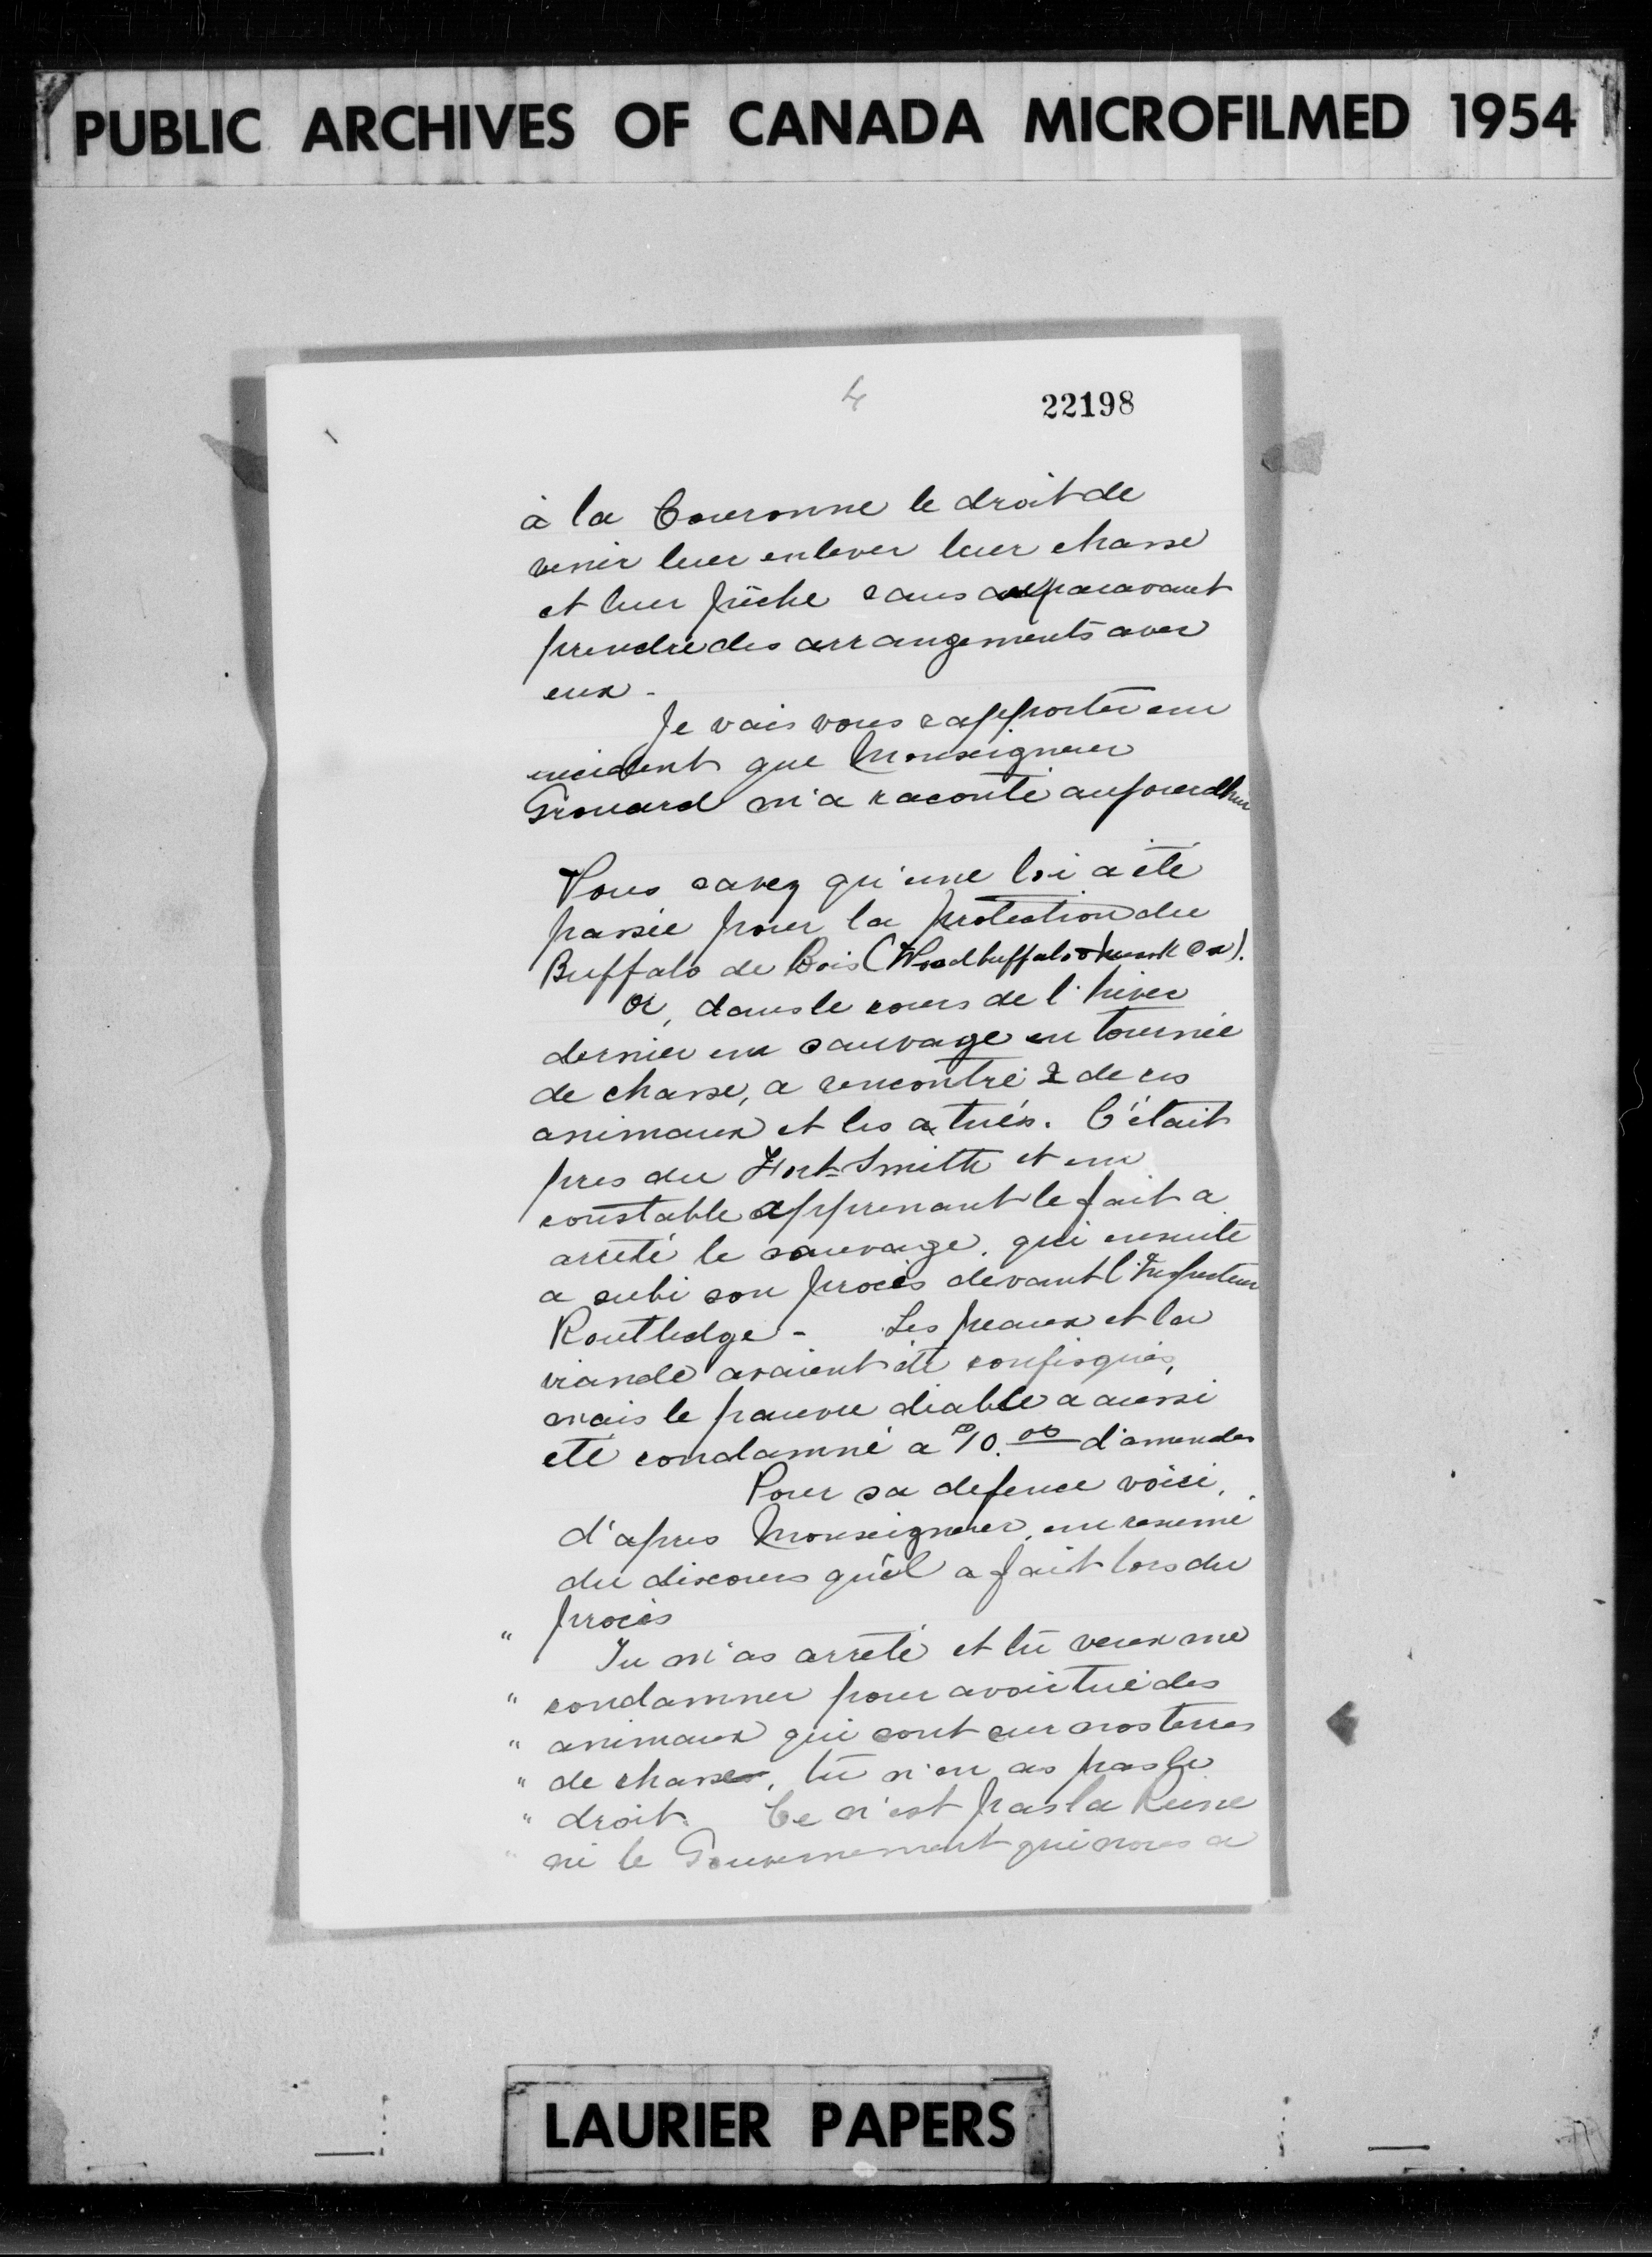 PUBLIC ARCHIVES OF CANADA MICROFILMED 1954
4
22198
à la Couronne le droit de
venir leur enlever leur chasse
et leur pêche sans auparavant
prendre des arrangements avec
eux -
Je vais vous rapporter un
incident que Monseigneur
Grouard m'a raconté aujourdhui
Vous savez qu'une loi a été
passée pour la protection du
Buffalo de Bois (Woodbuffalo & Ox).
Or, dans le cours de l'hiver
dernier un sauvage en tournée
de chasse, a rencontré 2 de ces
animaux et les a tués. C'était
pres du Fort-Smith et un
constable apprenant le fait a
arrêté le sauvage. qui ensuite
a subi son procès devant l'Inspecteur
Routledge - Les peaux et la
viande avaient été confisqués,
mais le pauvre diable a aussi
été condamné a $10.00 d'amendes
Pour sa defence voici,
d'apres Monseigneur, un resumé
du discours qu'il a fait lors du
procès
" Tu m'as arrêté et tu veux me
" condamner pour avoir tué des
" animaux qui sont sur nos terres
" de chasse, tu n'en as pas le
" droit. Ce n'est pas la Reine
" ni le Gouvernement qui nous a
LAURIER PAPERS